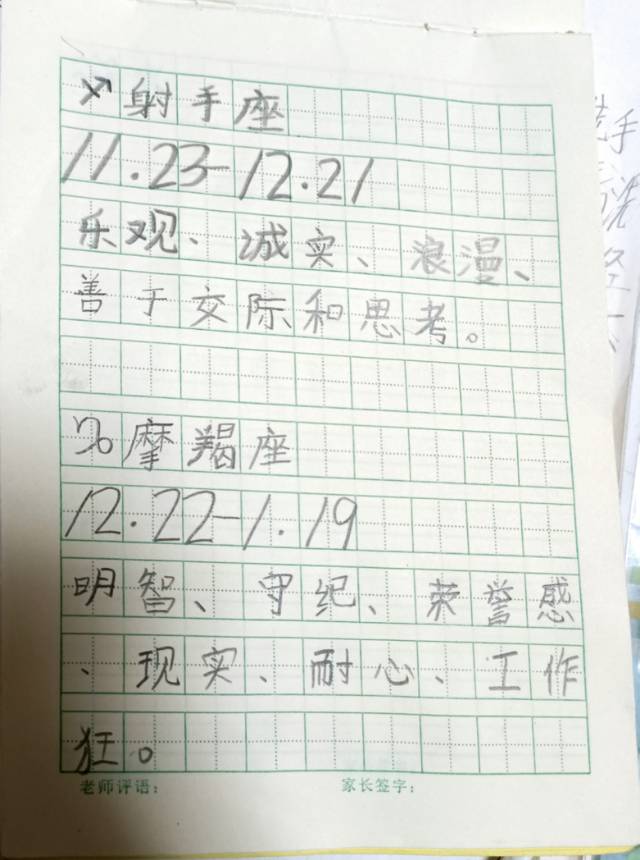 ♐射手座
11.23-12.21
乐观、诚实、浪漫、
善于交际和思考。
♑摩羯座
12.22-1.19
明智、守纪、荣誉感
、现实、耐心、工作
狂。
老师评语： 家长签字：